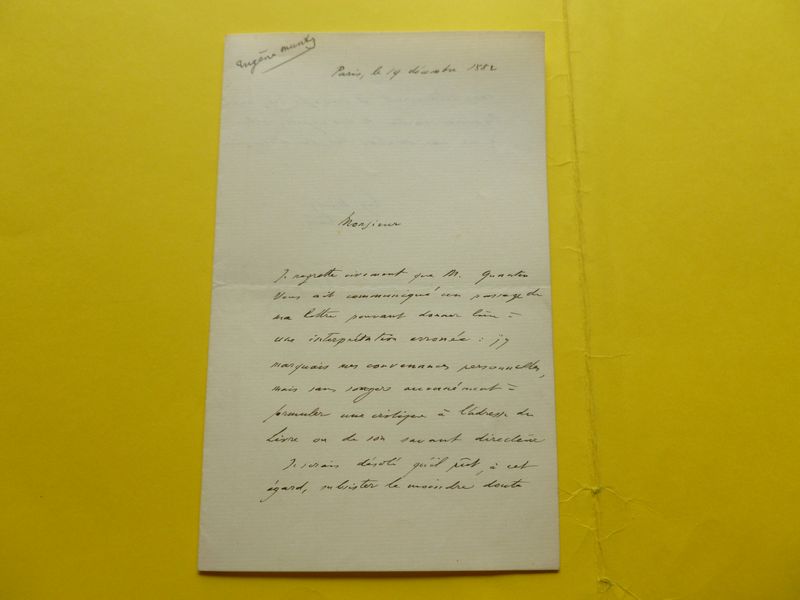 Eugène Muntz
Paris, le 19 décembre 1882
Monsieur
Je regrette vivement que M. Quantin
Vous ait communiqué un passage de
ma lettre pouvant donner lieu à
une interprétation erronée : j'y
marquais mes convenances personnelles,
mais sans songer aucunément à
formuler une critique à l'adresse du
Livre ou de son savant directeur
Je serais désolé qu'il pût, à cet
égard, subsister le moindre doute